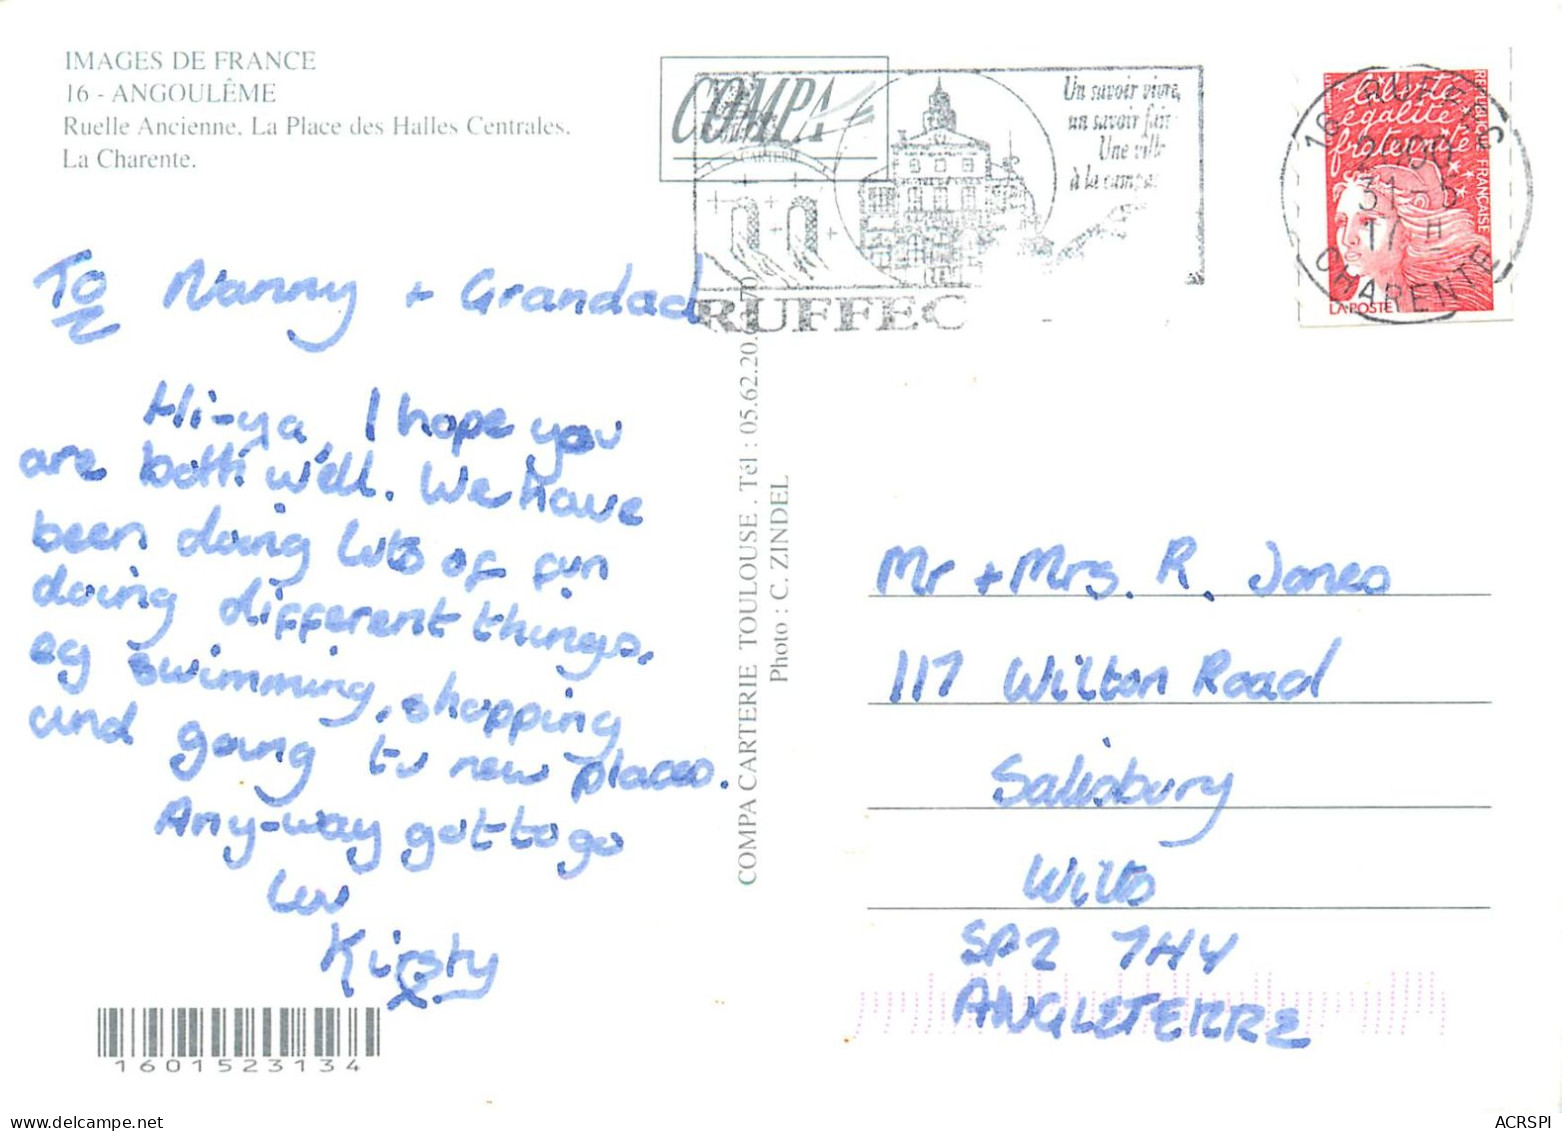 IMAGES DE FRANCE
16 - ANGOULÊME
Ruelle Ancienne. La Place des Halles Centrales.
La Charente.
COMPA
CARTERIE
Un savoir vivre,
un savoir fair
Une ville
à la campa
RUFFEC
16 RUFFEC
31-5
17 H
CHARENTE
Liberté
égalité
fraternité
REPUBLIQUE FRANÇAISE
LA POSTE
To Nanny + Grandad
Hi-ya I hope you
are both well. We have
been doing lots of fun
doing different things.
eg swimming, shopping
and going to new places.
Any-way got to go
luv
Kirsty
x
COMPA CARTERIE TOULOUSE . Tél : 05.62.20.
Photo : C. ZINDEL
Mr + Mrs. R. Jones
117 Wilton Road
Salisbury
Wilts
SP2 7HY
ANGLETERRE
1601523134
ACRSPI